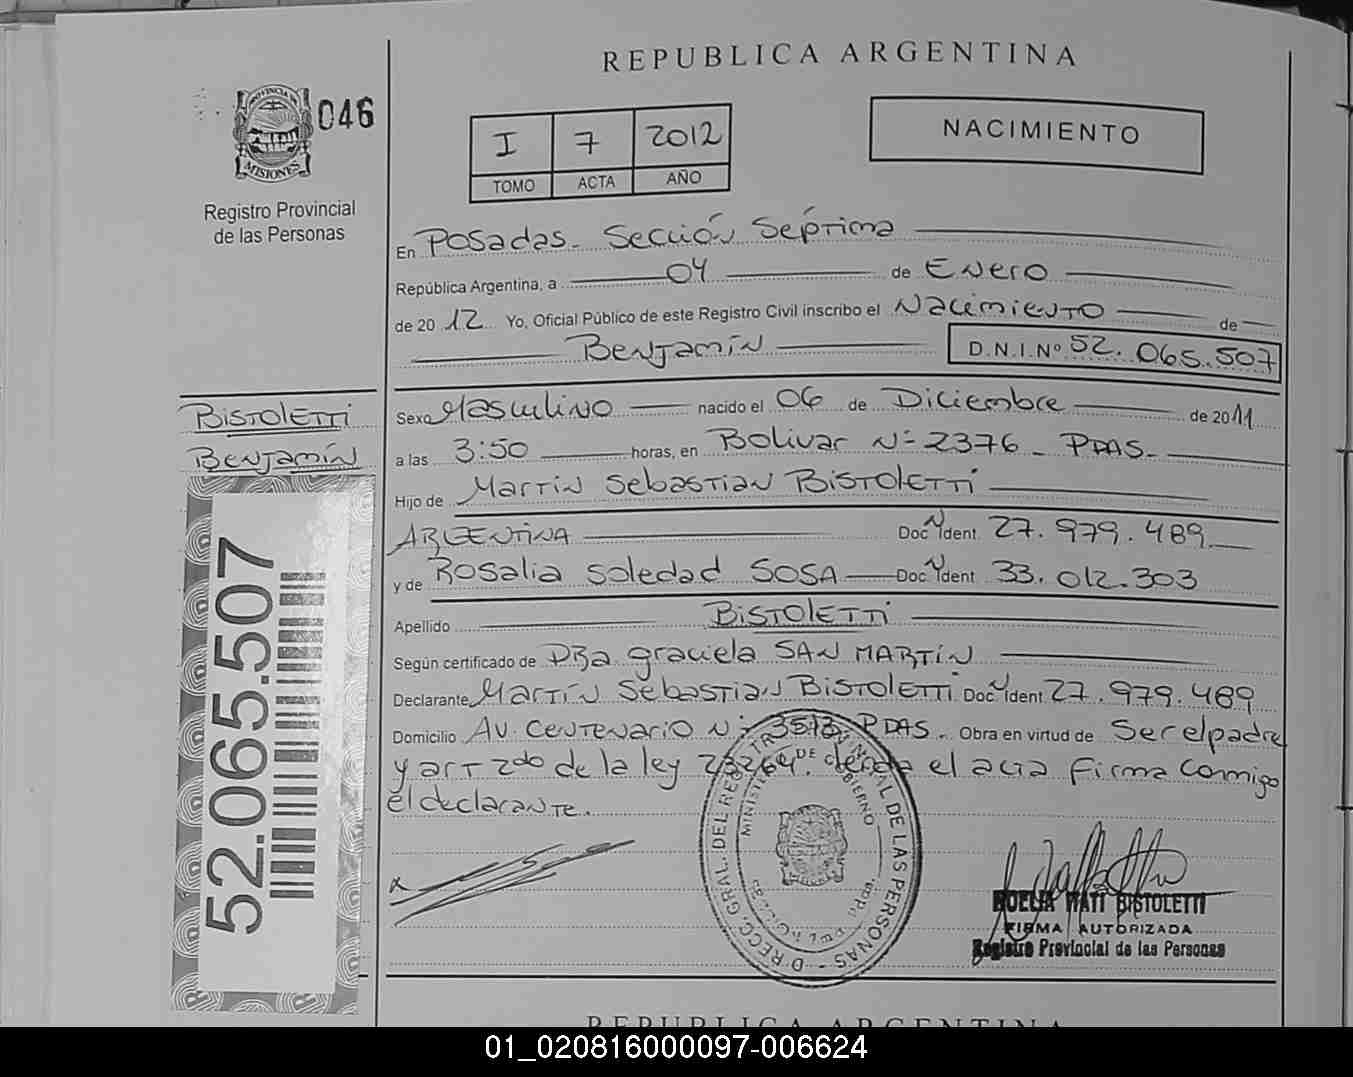 REPUBLICA ARGENTINA
046
MISIONES
Registro Provincial
de las Personas
I 7 2012
TOMO ACTA AÑO
NACIMIENTO
En Posadas. Sección Séptima
República Argentina, a 04 de Enero
de 20 12 Yo, Oficial Público de este Registro Civil inscribo el Nacimiento de
Benjamín D.N.I.Nº 52.065.507
BISTOLETTI
Benjamín
Sexo Masculino nacido el 06 de Diciembre de 2011
a las 3:50 horas, en Bolivar Nº 2376 - PDAS.
Hijo de Martín Sebastian BISTOLETTI
ARGENTINA Doc. Ident. 27.979.489
y de Rosalia Soledad SOSA Doc. Ident. 33.012.303
Apellido BISTOLETTI
Según certificado de DRa graciela SAN MARTÍN
Declarante Martín Sebastian BISTOLETTI Doc. Ident 27.979.489
Domicilio AV. Centenario Nº 3513 PDAS. Obra en virtud de Ser el padre
y art 2do de la ley 23264. leída el acta firma conmigo
el declarante.
52.065.507
D RECC. GRAL. DEL REGISTRO PROVINCIAL DE LAS PERSONAS
MINISTERIO DE GOBIERNO
NOELIA BISTOLETTI
FIRMA AUTORIZADA
Registro Provincial de las Personas
REPUBLICA ARGENTINA
01_020816000097-006624